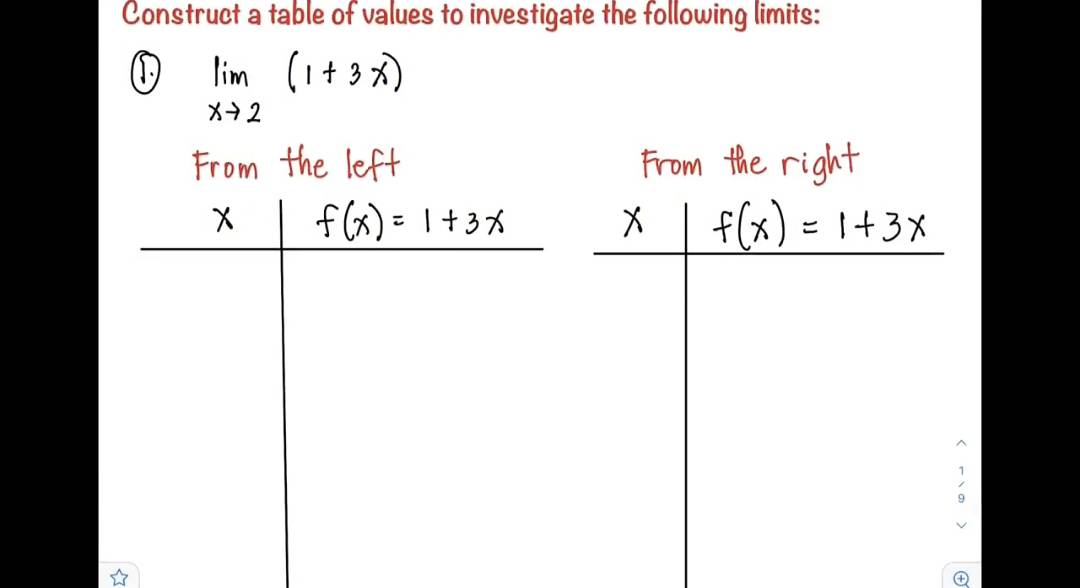 Construct a table of values to investigate the following limits:
1. lim (1 + 3x)
x→2
From the left
From the right
x f(x) = 1 + 3x
x f(x) = 1 + 3x
1
/
9